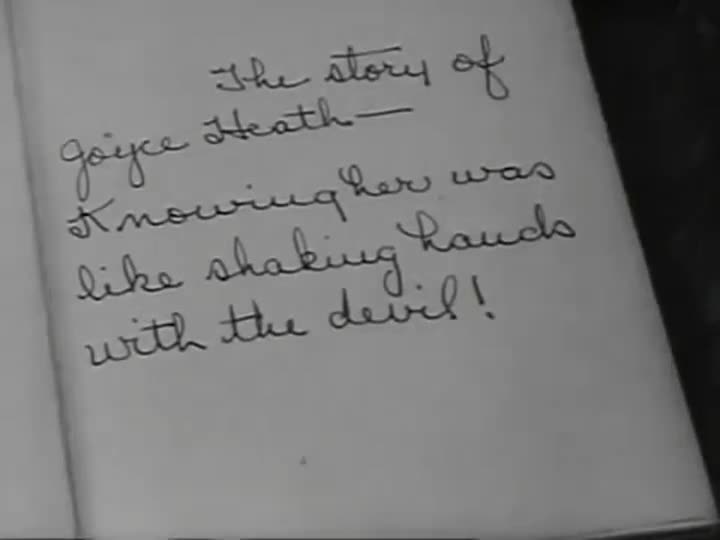 The story of
Joyce Heath—
Knowing her was
like shaking hands
with the devil!